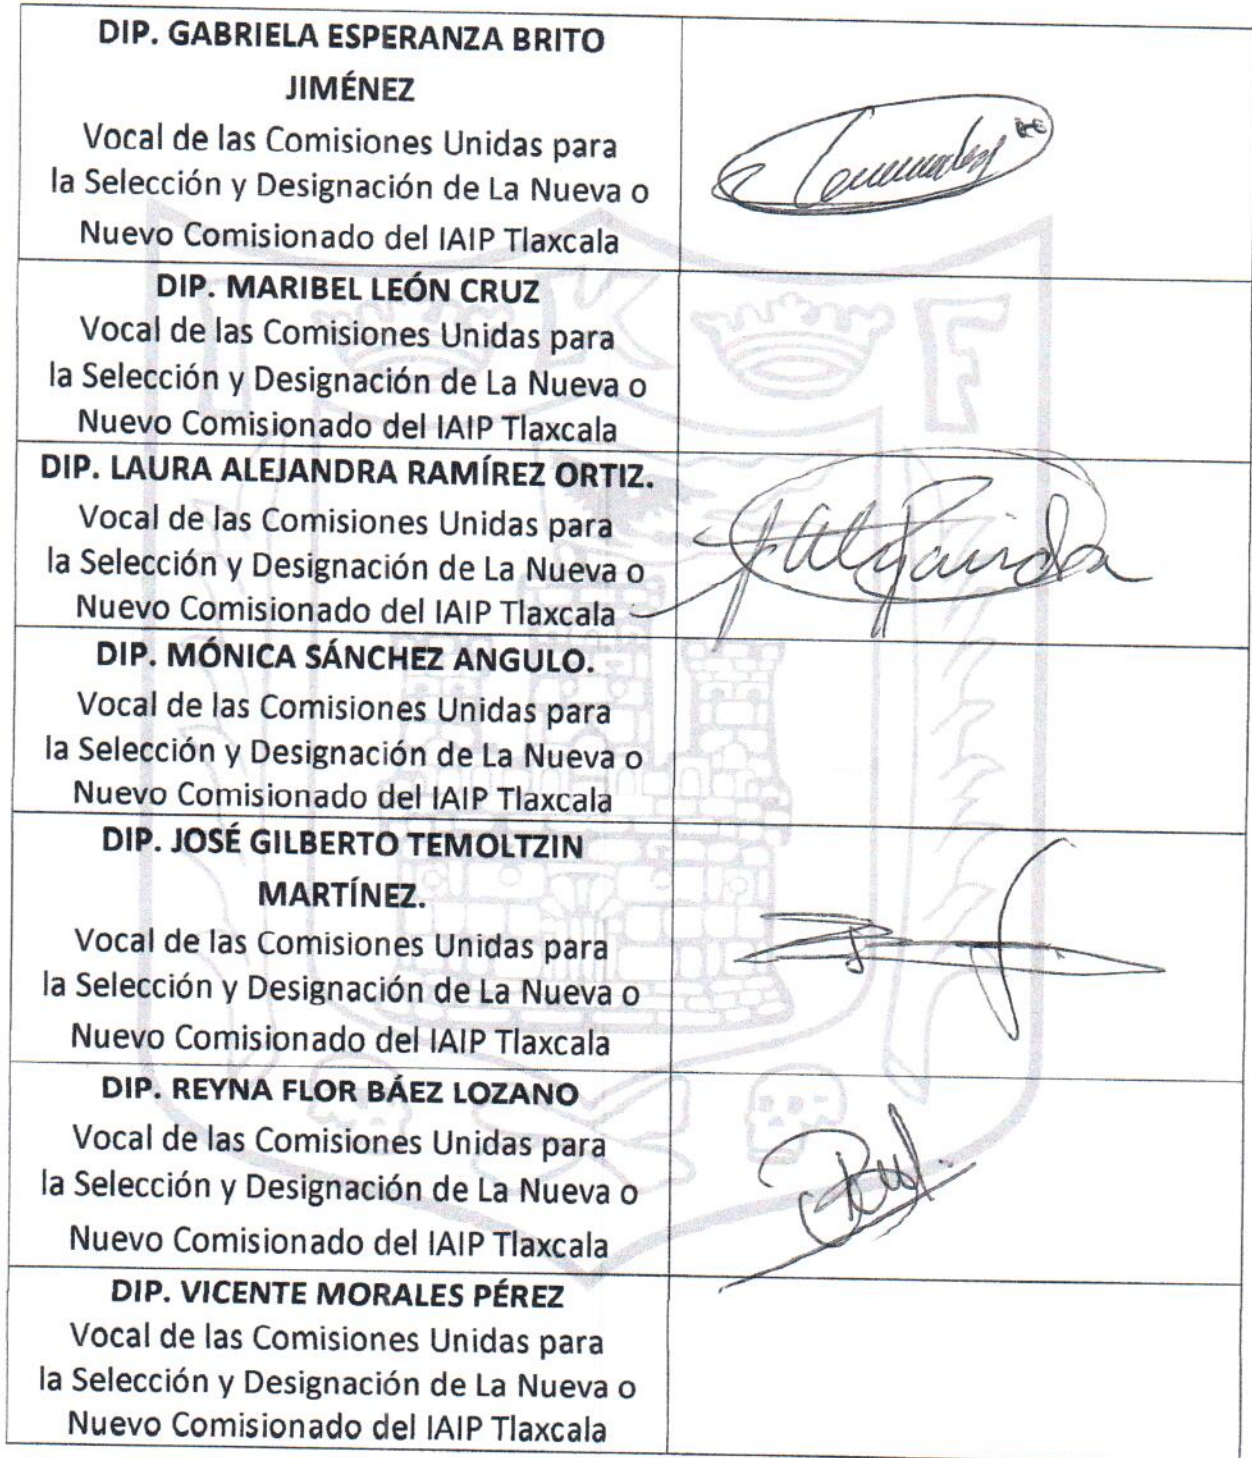 DIP. GABRIELA ESPERANZA BRITO
JIMÉNEZ
Vocal de las Comisiones Unidas para
la Selección y Designación de La Nueva o
Nuevo Comisionado del IAIP Tlaxcala
DIP. MARIBEL LEÓN CRUZ
Vocal de las Comisiones Unidas para
la Selección y Designación de La Nueva o
Nuevo Comisionado del IAIP Tlaxcala
DIP. LAURA ALEJANDRA RAMÍREZ ORTIZ.
Vocal de las Comisiones Unidas para
la Selección y Designación de La Nueva o
Nuevo Comisionado del IAIP Tlaxcala
DIP. MÓNICA SÁNCHEZ ANGULO.
Vocal de las Comisiones Unidas para
la Selección y Designación de La Nueva o
Nuevo Comisionado del IAIP Tlaxcala
DIP. JOSÉ GILBERTO TEMOLTZIN
MARTÍNEZ.
Vocal de las Comisiones Unidas para
la Selección y Designación de La Nueva o
Nuevo Comisionado del IAIP Tlaxcala
DIP. REYNA FLOR BÁEZ LOZANO
Vocal de las Comisiones Unidas para
la Selección y Designación de La Nueva o
Nuevo Comisionado del IAIP Tlaxcala
DIP. VICENTE MORALES PÉREZ
Vocal de las Comisiones Unidas para
la Selección y Designación de La Nueva o
Nuevo Comisionado del IAIP Tlaxcala
I K F